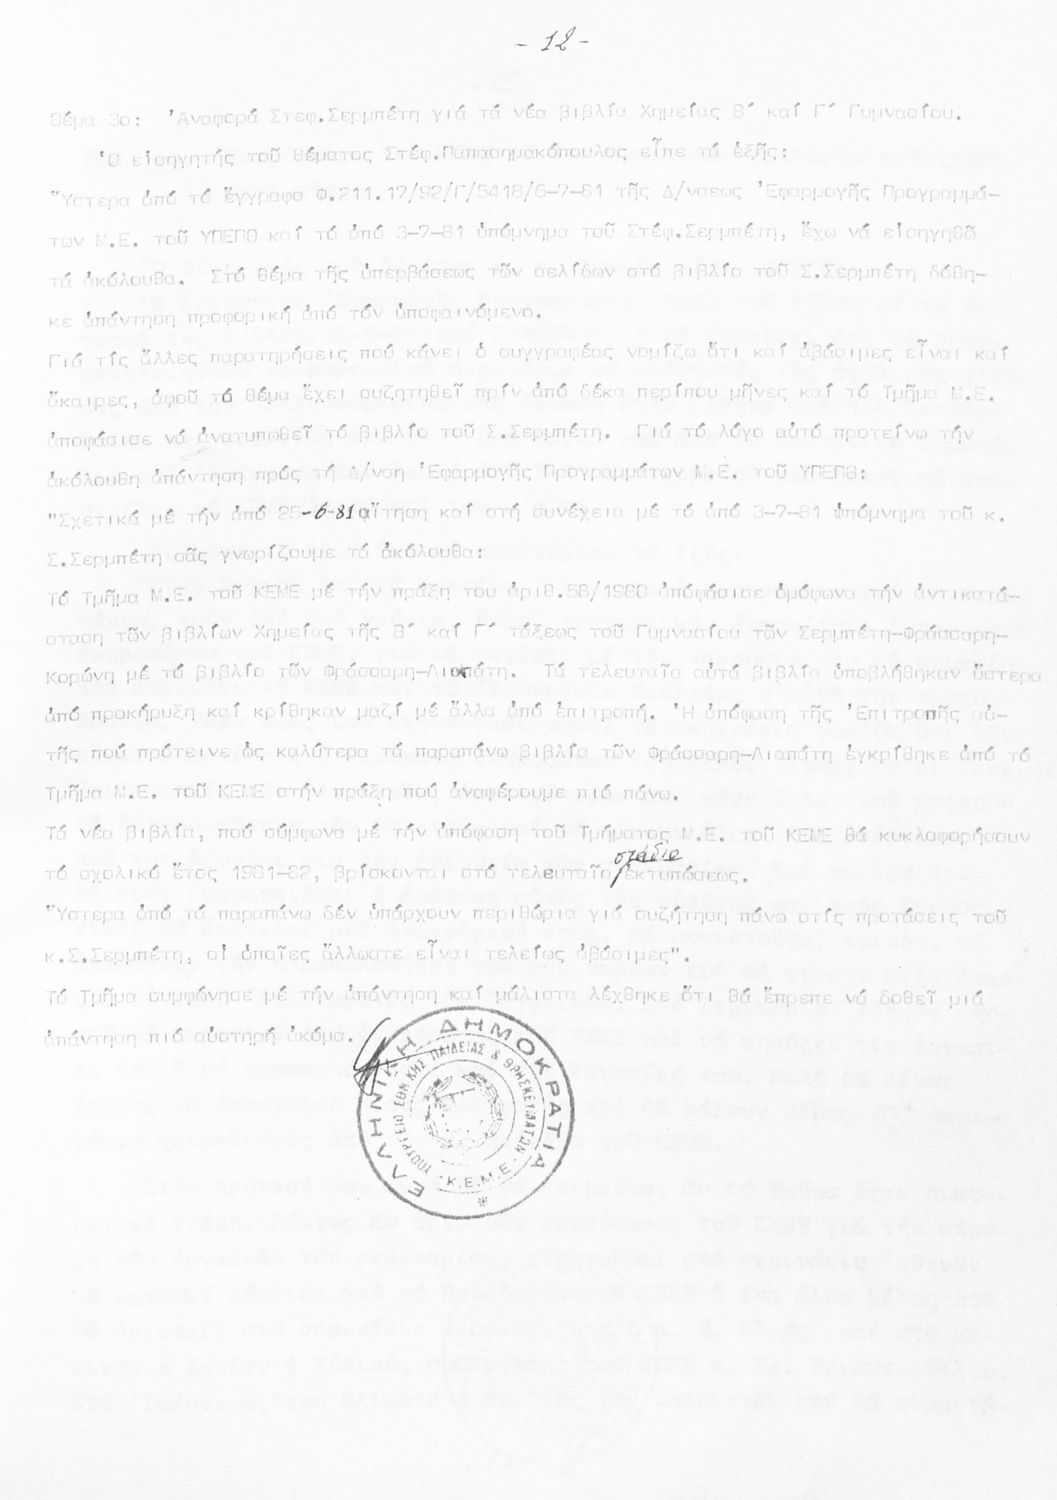 - 12 -
Θέμα 3ο: Ἀναφορά Στεφ.Σερμπέτη γιά τά νέα βιβλία Χημείας Β΄ καί Γ΄ Γυμνασίου.
Ὁ εἰσηγητής τοῦ θέματος Στέφ.Παπασημακόπουλος εἶπε τά ἑξῆς:
"Ὕστερα ἀπό τό ἔγγραφο Φ.211.17/92/Γ/5418/6-7-81 τῆς Δ/νσεως Ἐφαρμογῆς Προγραμμά-
των Μ.Ε. τοῦ ΥΠΕΠΘ καί τό ἀπό 3-7-81 ὑπόμνημα τοῦ Στέφ.Σερμπέτη, ἔχω νά εἰσηγηθῶ
τά ἀκόλουθα. Στό θέμα τῆς ὑπερβάσεως τῶν σελίδων στό βιβλίο τοῦ Σ.Σερμπέτη δόθη-
κε ἀπάντηση προφορική ἀπό τόν ὑποφαινόμενο.
Γιά τίς ἄλλες παρατηρήσεις πού κάνει ὁ συγγραφέας νομίζω ὅτι καί ἀβάσιμες εἶναι καί
ἄκαιρες, ἀφοῦ τό θέμα ἔχει συζητηθεῖ πρίν ἀπό δέκα περίπου μῆνες καί τό Τμῆμα Μ.Ε.
ἀποφάσισε νά ἀνατυπωθεῖ τό βιβλίο τοῦ Σ.Σερμπέτη. Γιά τό λόγο αὐτό προτείνω τήν
ἀκόλουθη ἀπάντηση πρός τή Δ/νση Ἐφαρμογῆς Προγραμμάτων Μ.Ε. τοῦ ΥΠΕΠΘ:
"Σχετικά μέ τήν ἀπό 25-6-81 αἴτηση καί στή συνέχεια μέ τό ἀπό 3-7-81 ὑπόμνημα τοῦ κ.
Σ.Σερμπέτη σᾶς γνωρίζουμε τά ἀκόλουθα:
Τό Τμῆμα Μ.Ε. τοῦ ΚΕΜΕ μέ τήν πράξη του ἀριθ.58/1980 ἀπόφάσισε ὁμόφωνα τήν ἀντικατά-
σταση τῶν βιβλίων Χημείας τῆς Β΄ καί Γ΄ τάξεως τοῦ Γυμνασίου τῶν Σερμπέτη-Φράσσαρη-
Κορώνη μέ τό βιβλίο τῶν Φράσσαρη-Λιαπάτη. Τά τελευταῖα αὐτά βιβλία ὑποβλήθηκαν ὕστερα
ἀπό προκήρυξη καί κρίθηκαν μαζί μέ ἄλλα ἀπό ἐπιτροπή. Ἡ ἀπόφαση τῆς Ἐπιτροπῆς αὐ-
τῆς πού πρότεινε ὡς καλύτερα τά παραπάνω βιβλία τῶν Φράσσαρη-Λιαπάτη ἐγκρίθηκε ἀπό τό
Τμῆμα Μ.Ε. τοῦ ΚΕΜΕ στήν πράξη πού ἀναφέρουμε πιό πάνω.
Τά νέα βιβλία, πού σύμφωνα μέ τήν ἀπόφαση τοῦ Τμήματος Μ.Ε. τοῦ ΚΕΜΕ θά κυκλοφορήσουν
τό σχολικό ἔτος 1981-82, βρίσκονται στό τελευταῖο στάδιο ἐκτυπώσεως.
Ὕστερα ἀπό τά παραπάνω δέν ὑπάρχουν περιθώρια γιά συζήτηση πάνω στίς προτάσεις τοῦ
κ.Σ.Σερμπέτη, οἱ ὁποῖες ἄλλωστε εἶναι τελείως ἀβάσιμες".
Τό Τμῆμα συμφώνησε μέ τήν ἀπάντηση καί μάλιστα λέχθηκε ὅτι θά ἔπρεπε νά δοθεῖ μιά
ἀπάντηση πιό αὐστηρή ἀκόμα.
ΕΛΛΗΝΙΚΗ ΔΗΜΟΚΡΑΤΙΑ
ΥΠΟΥΡΓΕΙΟ ΕΘΝΙΚΗΣ ΠΑΙΔΕΙΑΣ & ΘΡΗΣΚΕΥΜΑΤΩΝ
Κ.Ε.Μ.Ε.